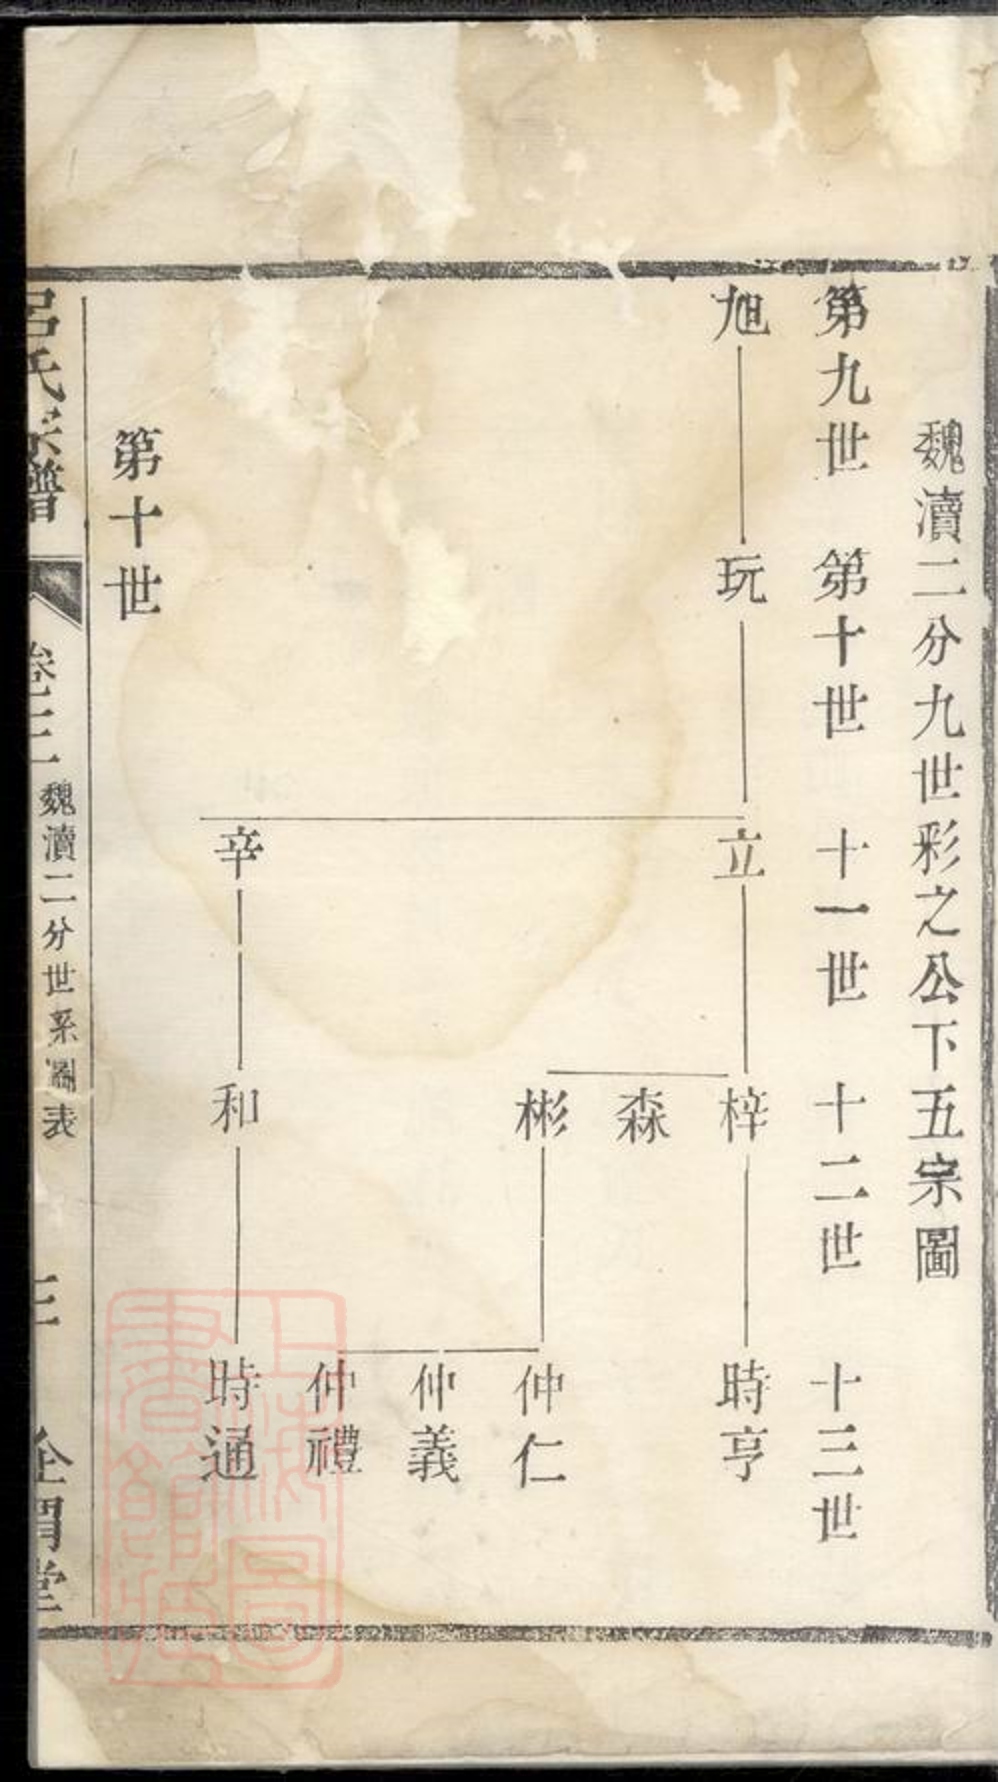 魏瀆二分九世彩之公下五宗圖
第九世 第十世 十一世 十二世 十三世
旭 玩 立 梓 時亨
森
彬 仲仁
仲義
仲禮
辛 和 時通
第十世
呂氏宗譜 卷三 魏瀆二分世系圖表 三 渭堂
上海圖書館藏